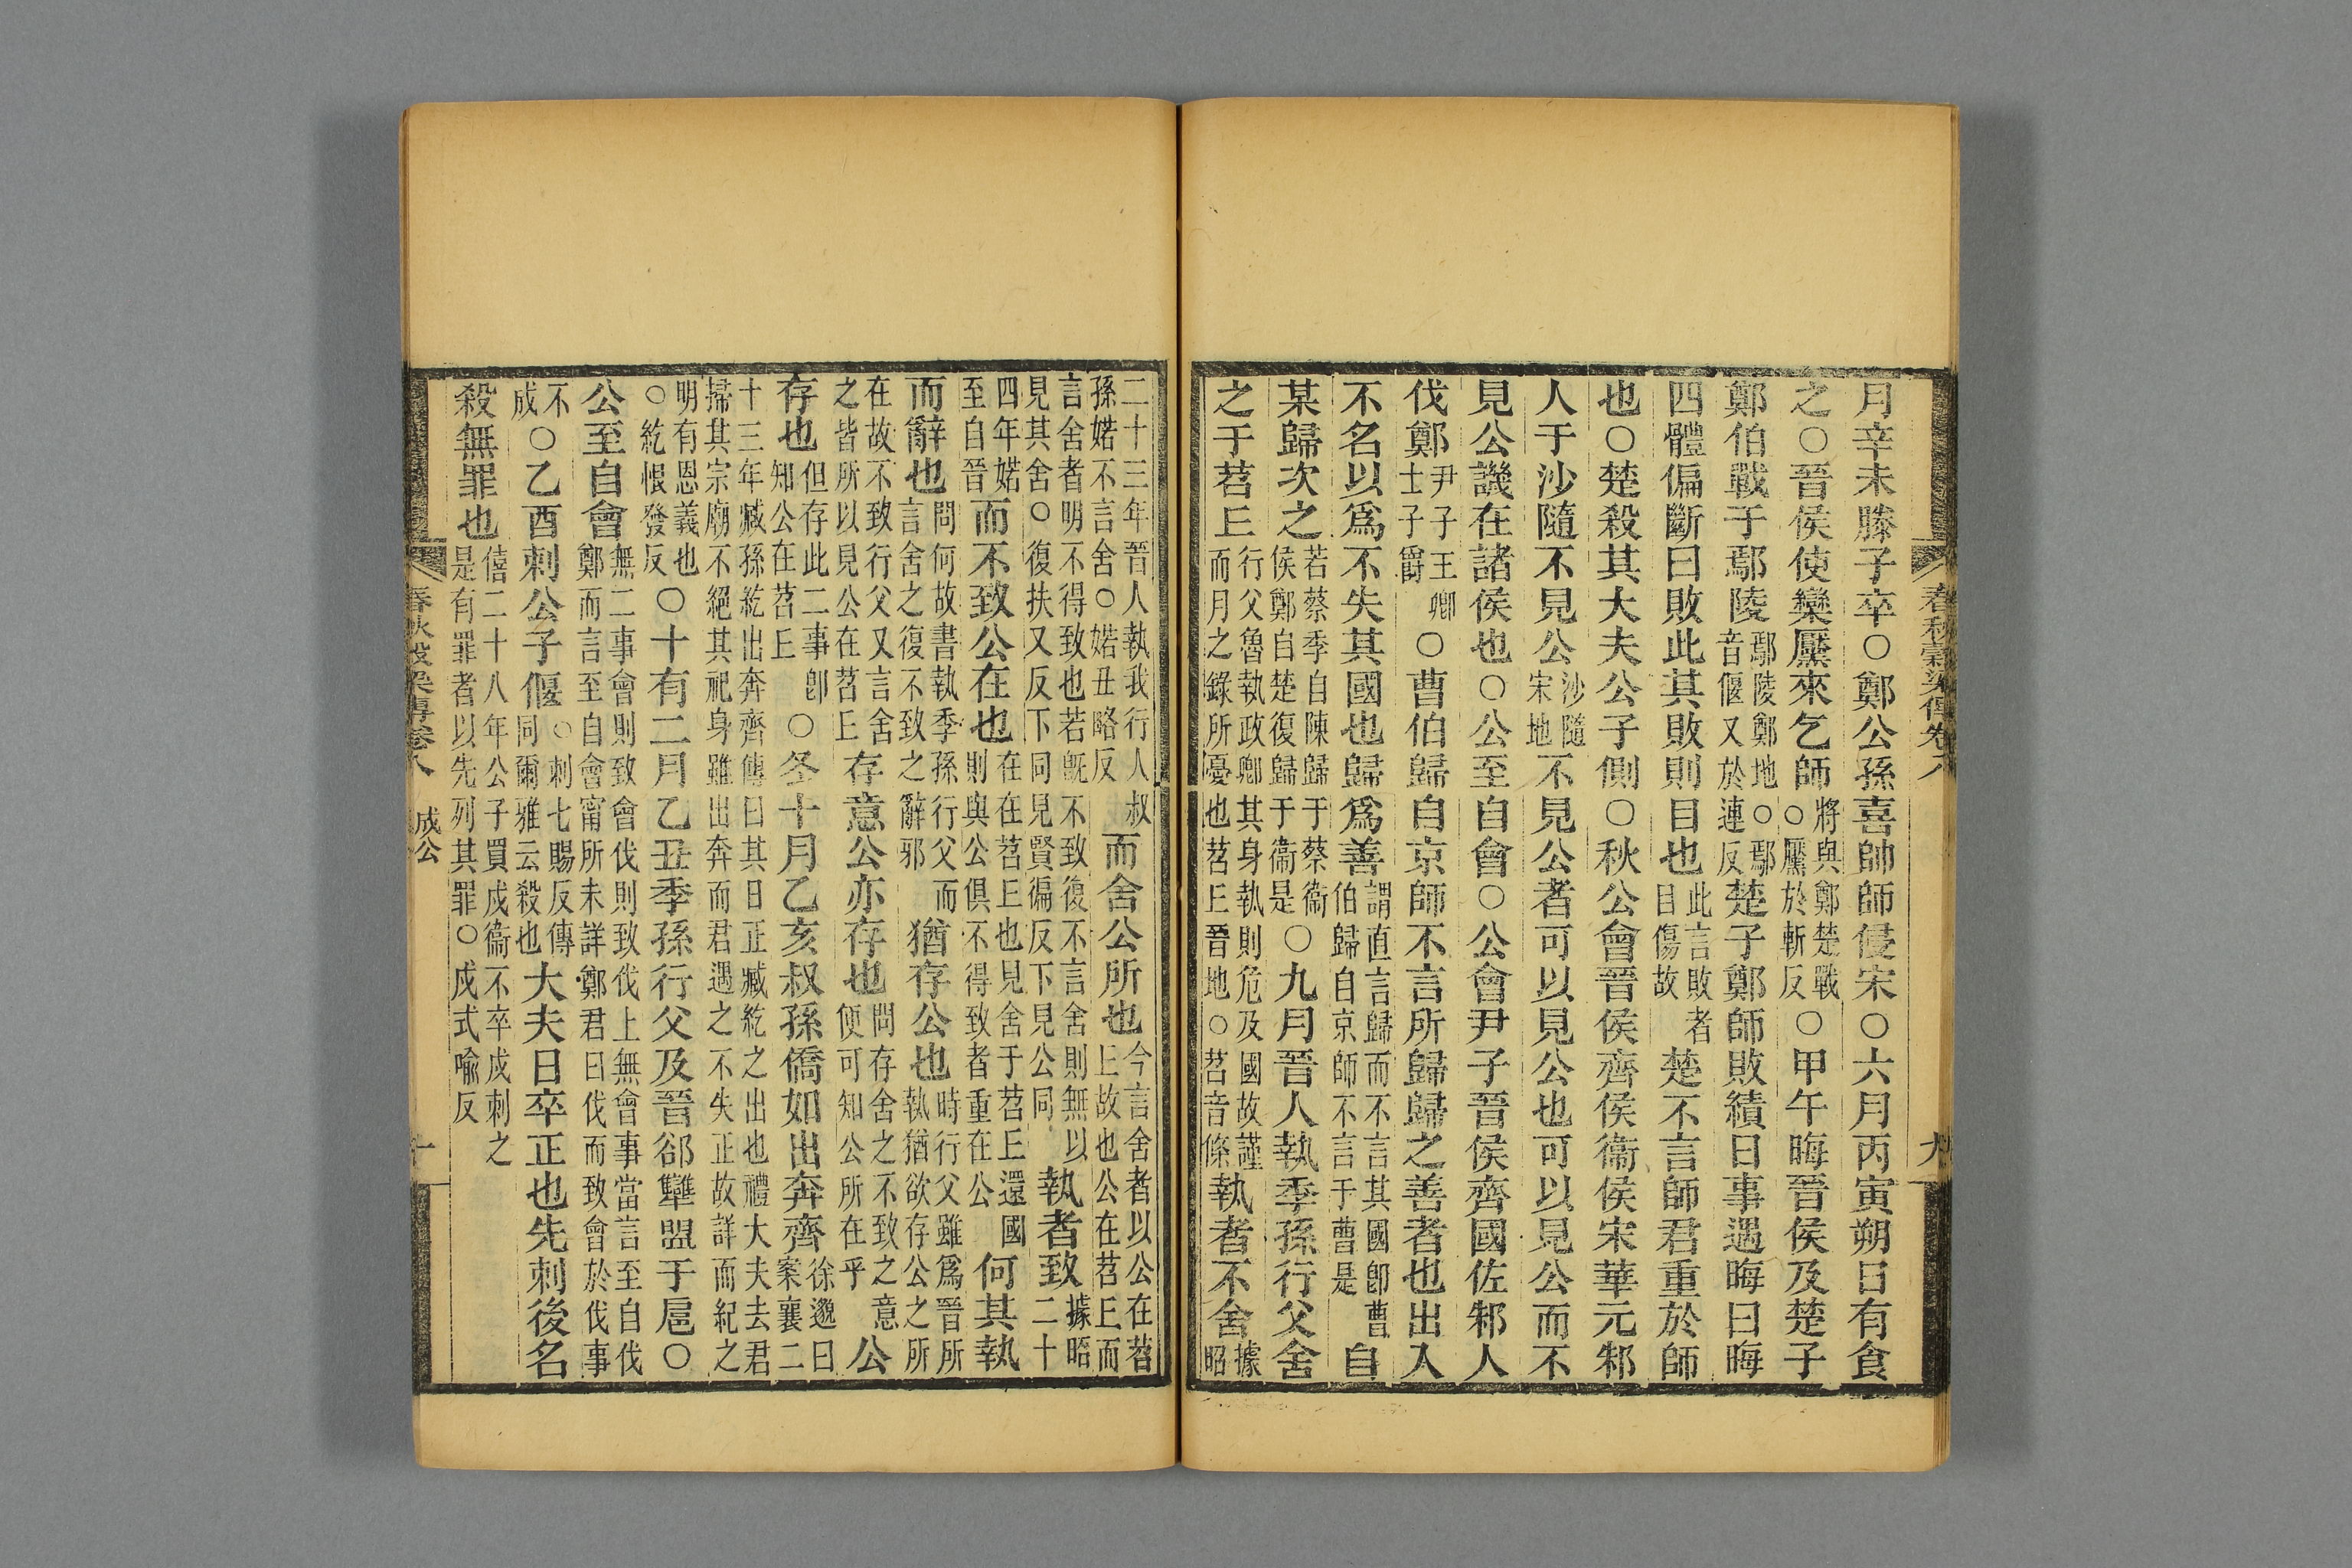 春秋穀梁傳卷八
九
月辛未滕子卒○鄭公孫喜帥師侵宋○六月丙寅朔日有食
之○晉侯使欒黶來乞師將與鄭楚戰○黶於斬反○甲午晦晉侯及楚子
鄭伯戰于鄢陵鄢陵鄭地○鄢音偃又於連反楚子鄭師敗績日事遇晦曰晦
四體偏斷曰敗此其敗則目也此言敗者目傷故楚不言師君重於師
也○楚殺其大夫公子側○秋公會晉侯齊侯衞侯宋華元邾
人于沙隨不見公沙隨宋地不見公者可以見公也可以見公而不
見公譏在諸侯也○公至自會○公會尹子晉侯齊國佐邾人
伐鄭尹子王卿士子爵○曹伯歸自京師不言所歸歸之善者也出入
不名以爲不失其國也歸爲善謂直言歸而不言其國卽曹伯歸自京師不言于曹是自
某歸次之若蔡季自陳歸于蔡衞侯鄭自楚復歸于衞是○九月晉人執季孫行父舍
之于苕丘行父魯執政卿其身執則危及國故謹而月之錄所憂也苕丘晉地○苕音條執者不舍據昭
二十三年晉人執我行人叔孫婼不言舍○婼丑略反而舍公所也今言舍者以公在苕丘故也公在苕丘而
言舍者明不得致也若旣不致復不言舍則無以見其舍○復扶又反下同見賢徧反下見公同執者致據昭二十
四年婼至自晉而不致公在也在在苕丘也見舍于苕丘還國則與公俱不得致者重在公何其執
而辭也問何故書執季孫行父而言舍之復不致之辭邪猶存公也時行父雖爲晉所執猶欲存公之所
在故不致行父又言舍之皆所以見公在苕丘存意公亦存也問存舍之不致之意便可知公所在乎公
存也但存此二事卽知公在苕丘○冬十月乙亥叔孫僑如出奔齊徐邈曰案襄二
十三年臧孫紇出奔齊傳曰其日正臧紇之出也禮大夫去君掃其宗廟不絕其祀身雖出奔而君遇之不失正故詳而紀之
明有恩義也○紇恨發反○十有二月乙丑季孫行父及晉郤犫盟于扈○
公至自會無二事會則致會伐則致伐上無會事當言至自伐鄭而言至自會甯所未詳鄭君曰伐而致會於伐事
不成○乙酉刺公子偃○刺七賜反傳同爾雅云殺也大夫日卒正也先刺後名
殺無罪也僖二十八年公子買戍衞不卒戍刺之是有罪者以先列其罪○戍式喩反
春秋穀梁傳卷八
成公
十